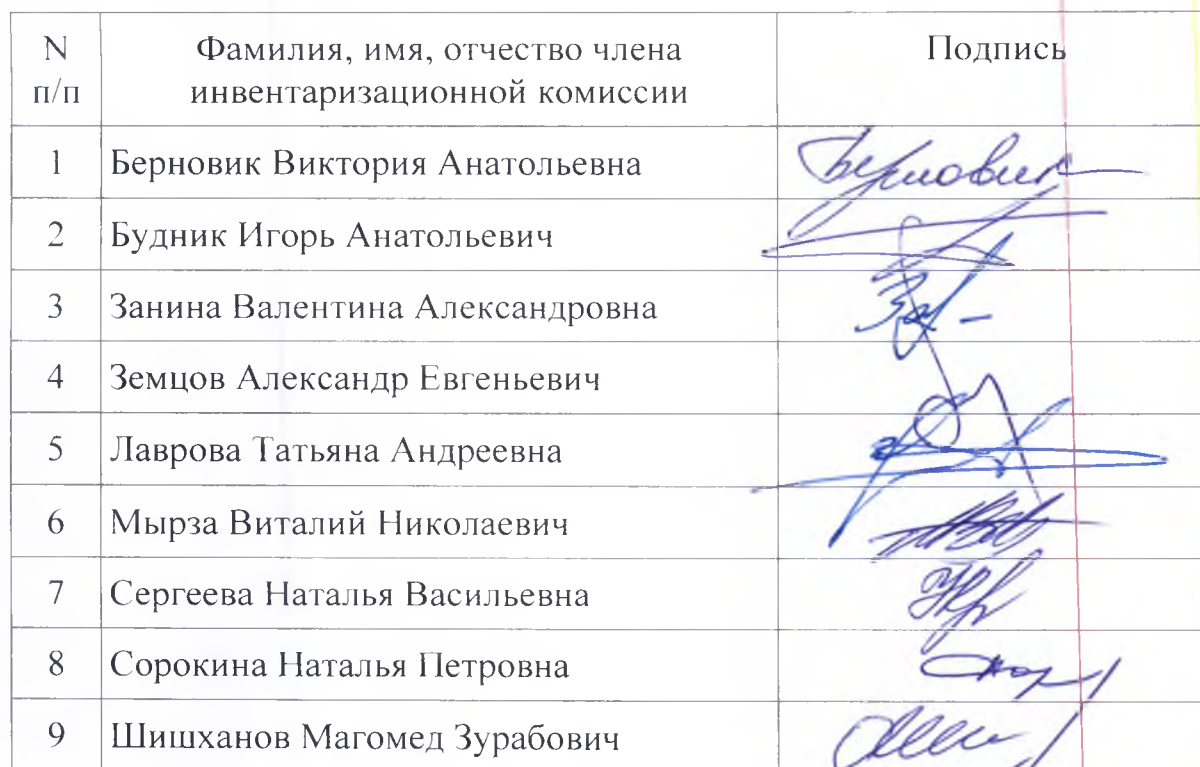 N Фамилия, имя, отчество члена Подпись
п/п инвентаризационной комиссии
1 Берновик Виктория Анатольевна Берновик
2 Будник Игорь Анатольевич
3 Занина Валентина Александровна
4 Земцов Александр Евгеньевич
5 Лаврова Татьяна Андреевна
6 Мырза Виталий Николаевич
7 Сергеева Наталья Васильевна
8 Сорокина Наталья Петровна
9 Шишханов Магомед Зурабович